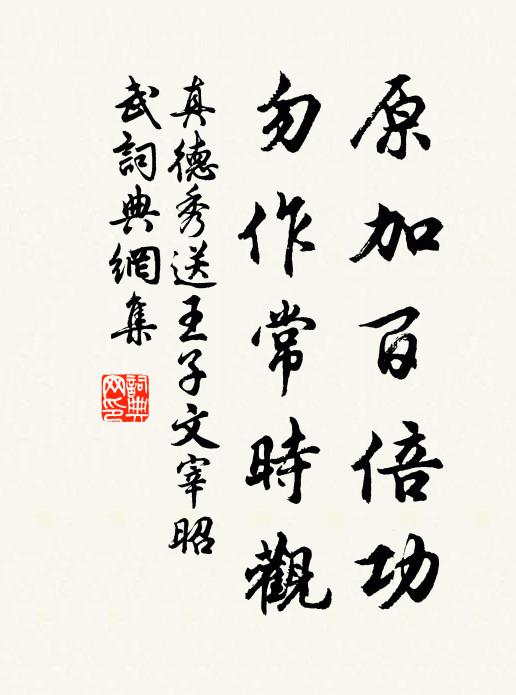 原加百倍功
勿作常時觀
真德秀送王子文宰昭
武詞典網集
詞典
网印